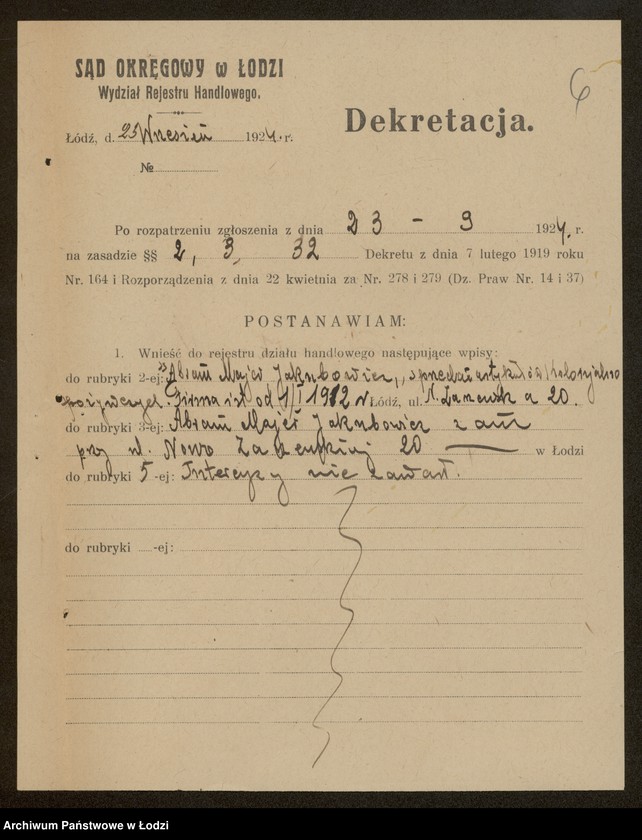 SĄD OKRĘGOWY w ŁODZI
Wydział Rejestru Handlowego.
6
Dekretacja.
Łódź, d. 23 Wrzesień 1924. r.
№
Po rozpatrzeniu zgłoszenia z dnia 23 - 9 1924. r.
na zasadzie §§ 2, 3, 32 Dekretu z dnia 7 lutego 1919 roku
Nr. 164 i Rozporządzenia z dnia 22 kwietnia za Nr. 278 i 279 (Dz. Praw Nr. 14 i 37)
POSTANAWIAM:
1. Wnieść do rejestru działu handlowego następujące wpisy:
do rubryki 2-ej: „Abram Majer Jakubowicz", sprzedaż artykułów kolonjalno
spożywczych. Firma ist. od 1/I 1912 r Łódź, ul. N. Zarzewska 20.
do rubryki 3-ej: Abram Majer Jakubowicz zam
przy ul. Nowo Zarzewskiej 20 — w Łodzi
do rubryki 5-ej: Intercyzy nie zawarł.
do rubryki -ej:
Archiwum Państwowe w Łodzi